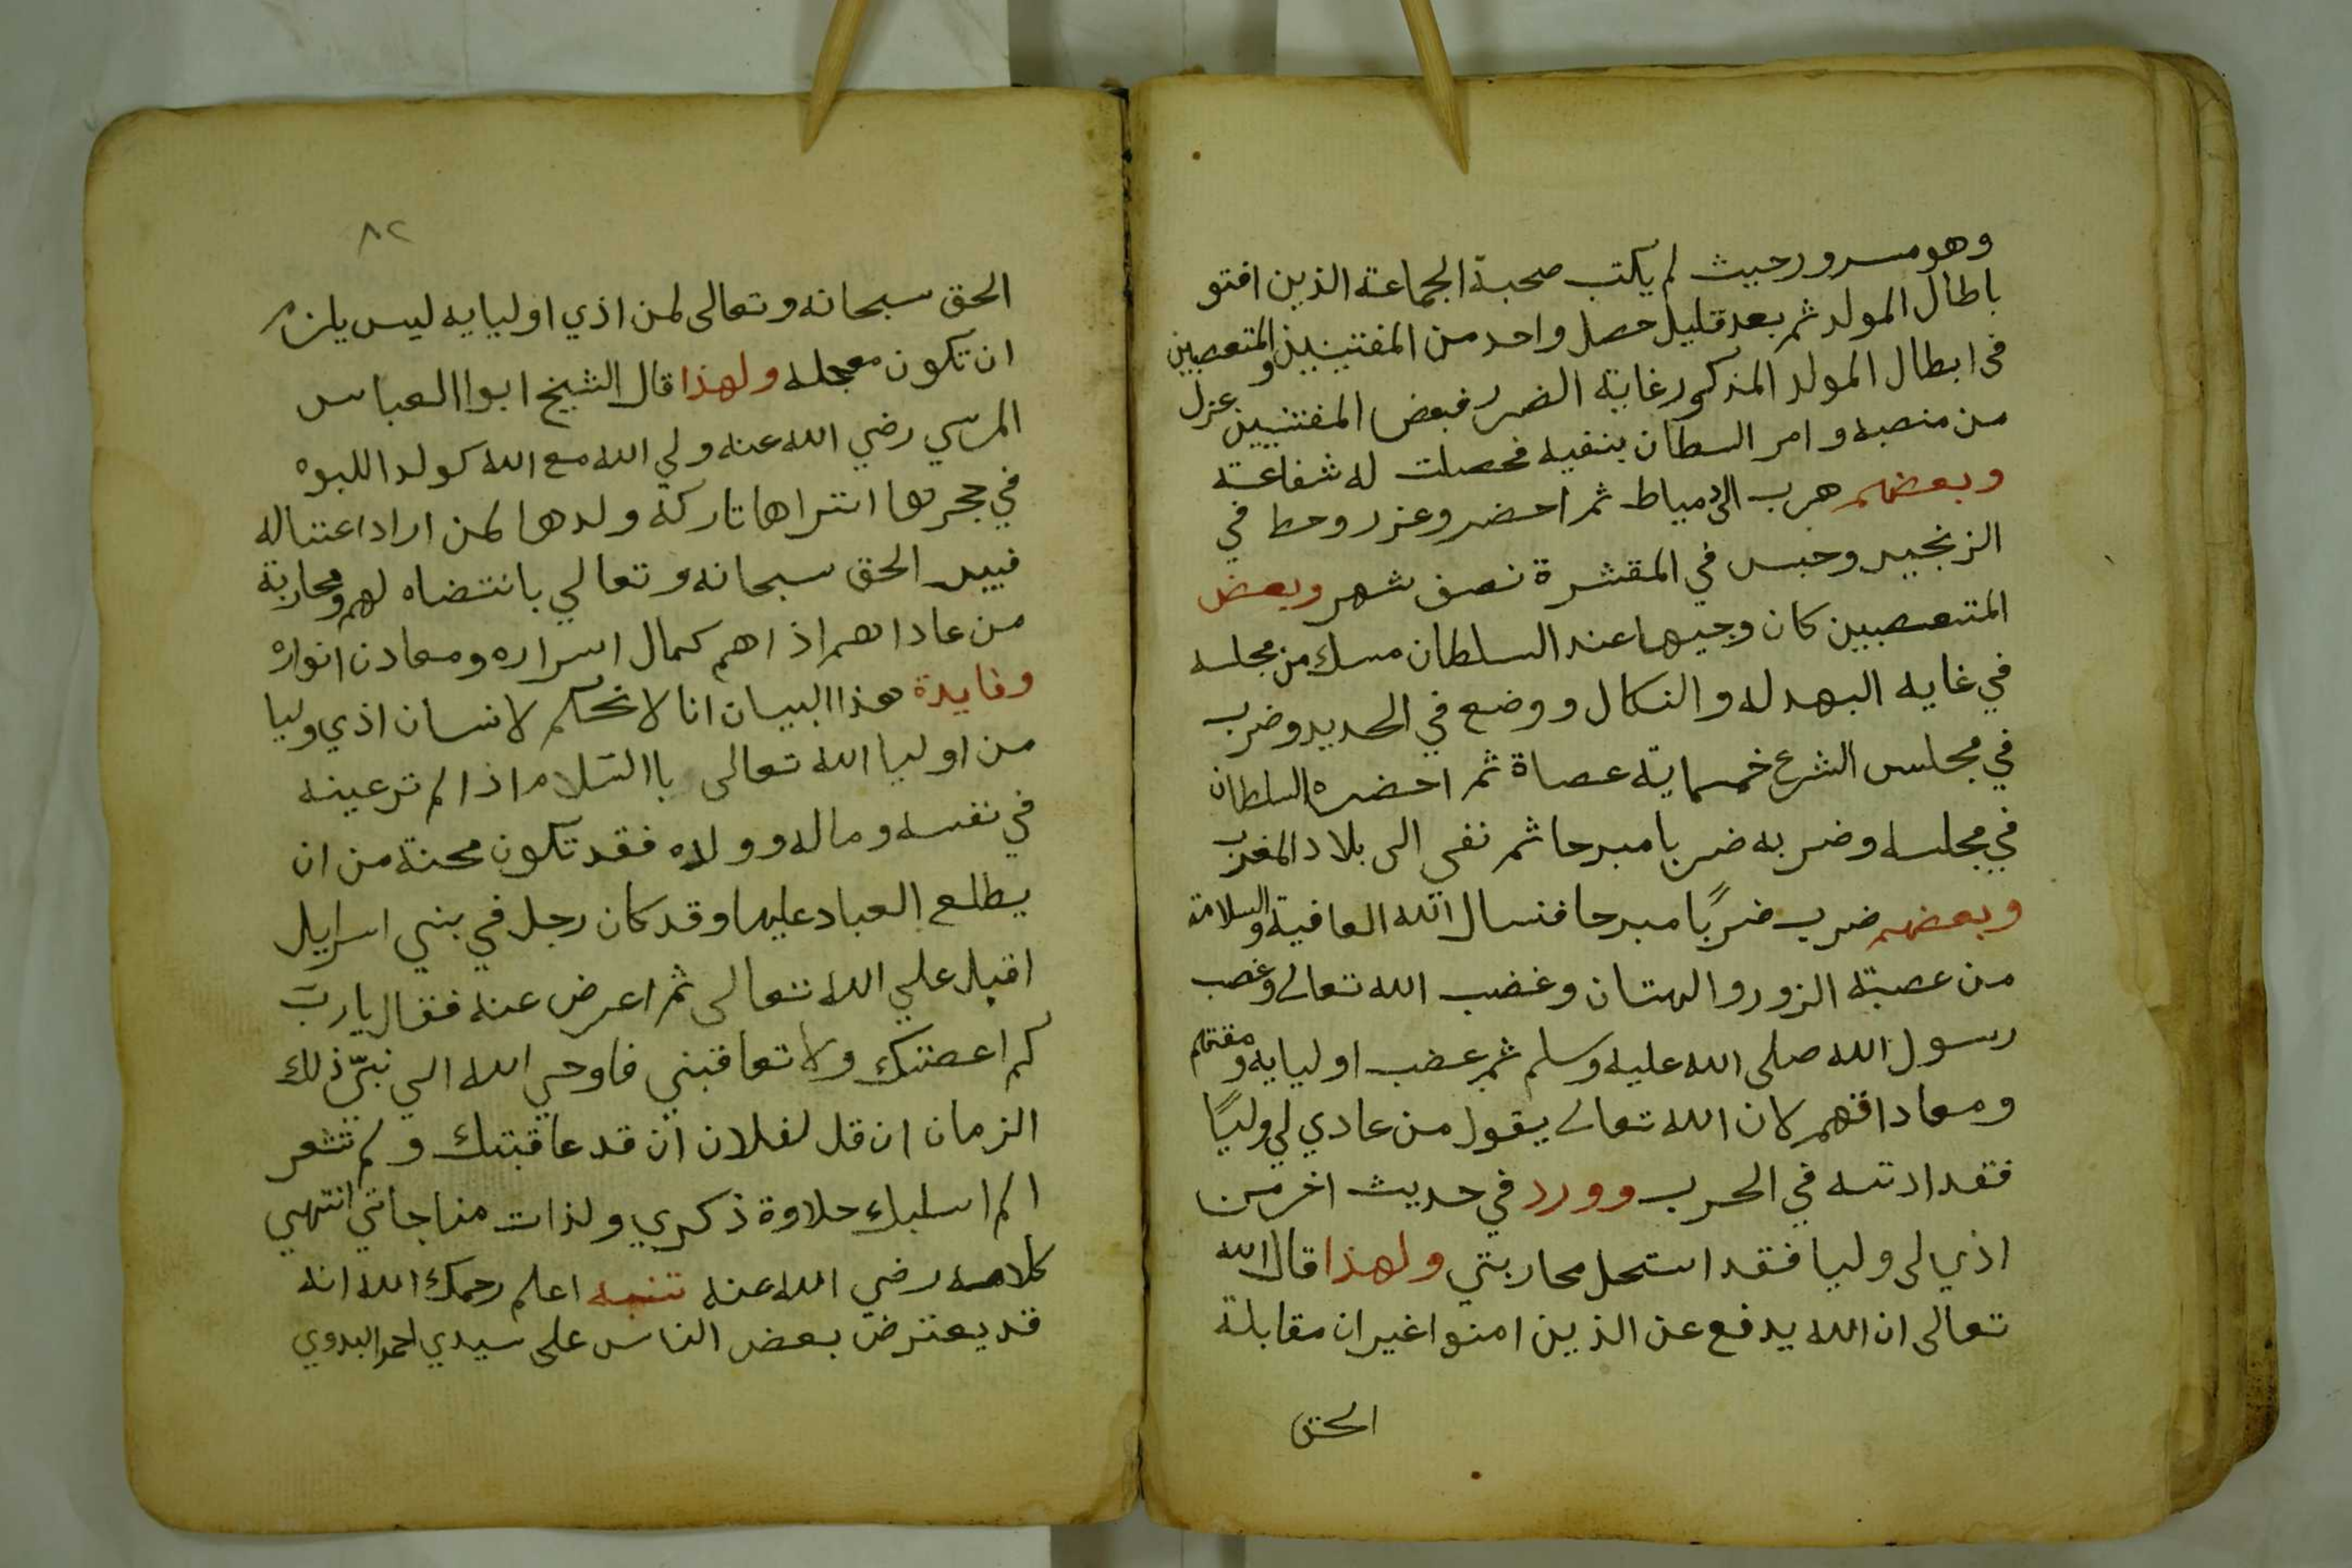 وهو مسرور حيث لم يكتب صحبة الجماعة الذين افتو
باطال المولد ثم بعد قليل حصل واحد من المفتيين والمتعصبين
في ابطال المولد المذكور غاية الضرر فبعض المفتيين عزل
من منصبه وامر السطان بنفيه فحصلت له شفاعة
وبعضهم هرب الى دمياط ثم احضر وعزر وحط في
الزنجير وحبس في المقشرة نصف شهر وبعض
المتعصبين كان وجيها عند السلطان مسك من مجلسه
في غايه البهدله والنكال ووضع في الحديد وضرب
في مجلس الشرع خمسماية عصاة ثم احضره السلطان
في مجلسه وضربه ضربا مبرحا ثم نفى الى بلاد المغرب
وبعضهم ضرب ضربًا مبرحا فنسال الله العافية والسلامة
من عصبة الزور والبهتان وغضب الله تعالى وغضب
رسول الله صلى الله عليه وسلم ثم غضب اوليايه ومقتهم
ومعاداتهم لان الله تعالى يقول من عادي لي وليًا
فقد اذنته في الحرب وورد في حديث اخر من
اذي لى وليا فقد استحل محاربتي ولهذا قال الله
تعالى ان الله يدفع عن الذين امنوا غير ان مقابلة
الحق
٨٢
الحق سبحانه وتعالى لمن اذي اوليايه ليس يلزم
ان تكون معجله ولهذا قال الشيخ ابوا العباس
المرسي رضي الله عنه ولي الله مع الله كولد اللبوه
في حجرها اتراها تاركة ولدها لمن اراد اغتياله
فييد الحق سبحانه وتعالي بانتضاه لهم ومحاربة
من عاداهم اذ اهم كمال اسراره ومعادن انواره
وفايدة هذا البيان انا لا نحكم لانسان اذي وليا
من اوليا الله تعالى باالسلام اذا لم تر عينه
في نفسه وماله وولده فقد تكون محنة من ان
يطلع العباد عليها وقد كان رجل في بني اسرايل
اقبل علي الله تعالى ثم اعرض عنه فقال يا رب
كم اعصتك ولا تعاقبني فاوحي الله الي نبيّ ذلك
الزمان ان قل لفلان ان قد عاقبتك ولم تشعر
الم اسلبك حلاوة ذكري ولذات مناجاتي انتهي
كلامه رضي الله عنه تنبيه اعلم رحمك الله انه
قد يعترض بعض الناس على سيدي احمد البدوي